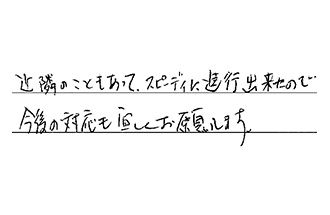 近隣のこともあって、スピーディに進行出来たので
今後の対応も宜しくお願いします。